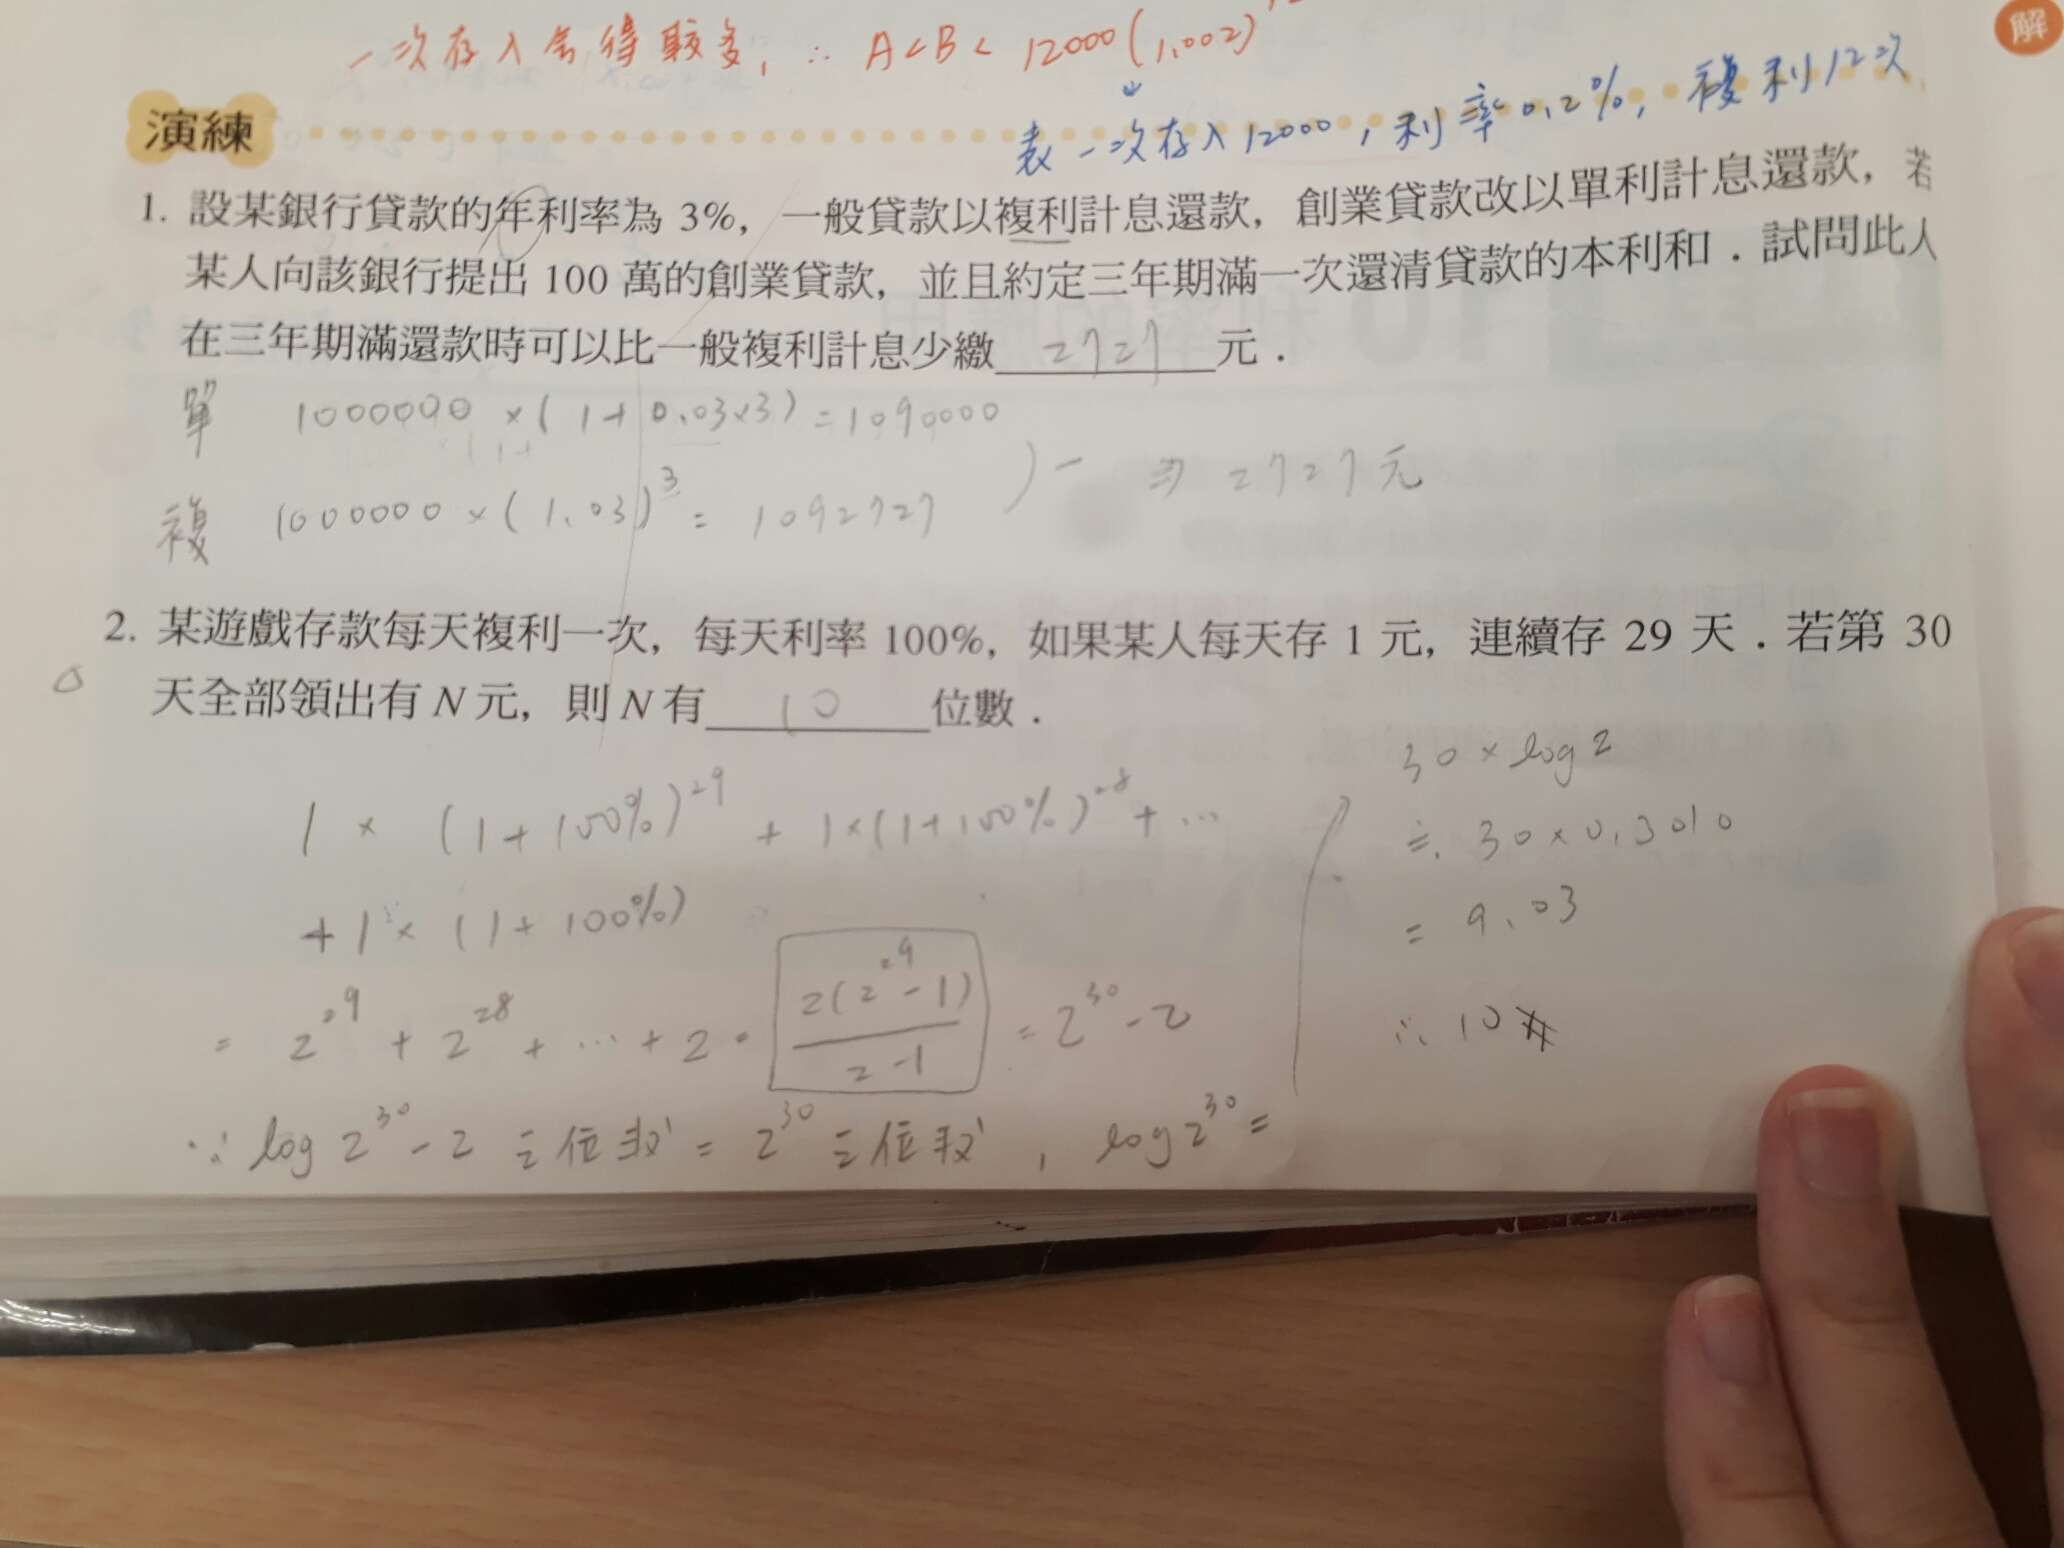 一次存入會得較多, ∴ A<B< 12000(1.002)
解
表一次存入12000, 利率0.2%, 複利12次
演練
1. 設某銀行貸款的年利率為 3%，一般貸款以複利計息還款，創業貸款改以單利計息還款，若
某人向該銀行提出 100 萬的創業貸款，並且約定三年期滿一次還清貸款的本利和．試問此人
在三年期滿還款時可以比一般複利計息少繳 2727 元．
單 1000000 ×(1+0.03×3)=1090000
複 1000000×(1.03)³ = 1092727 )− ⇒ 2727元
2. 某遊戲存款每天複利一次，每天利率 100%，如果某人每天存 1 元，連續存 29 天．若第 30
天全部領出有 N 元，則 N 有 10 位數．
1 × (1+100%)²⁹ + 1×(1+100%)²⁸+ …
+1×(1+100%)
= 2²⁹ + 2²⁸ + … + 2 = 2(2²⁹-1)/2-1 = 2³⁰-2
∵ log 2³⁰-2 之位数 = 2³⁰ 之位数, log2³⁰=
30×log2
≒ 30×0.3010
= 9.03
∴ 10#